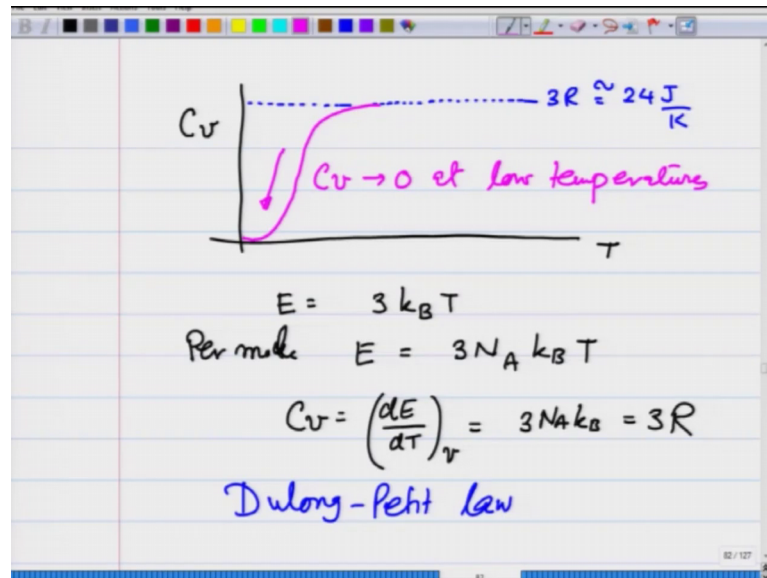 3R ≅ 24 J/K
Cv
Cv → 0 at low temperatures
T
E = 3 k_B T
Per mole E = 3 N_A k_B T
Cv = (dE/dT)_v = 3 N_A k_B = 3R
Dulong-Petit law
82 / 127